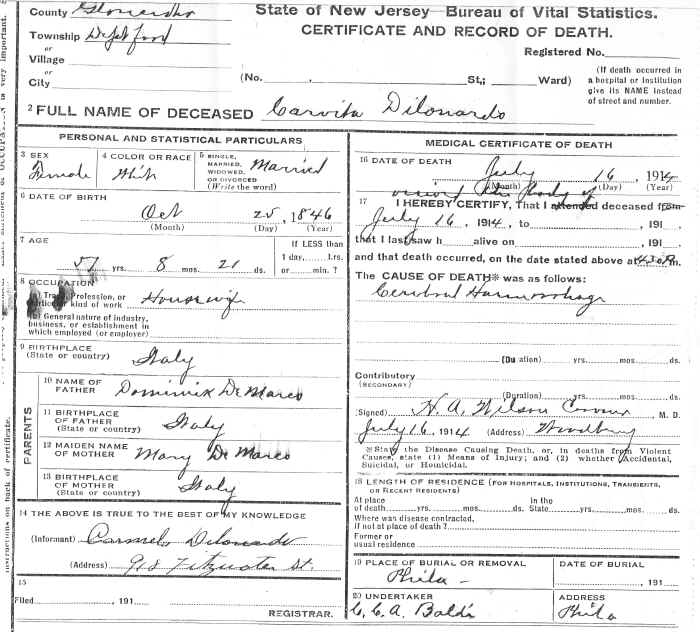 County Gloucester
State of New Jersey—Bureau of Vital Statistics.
CERTIFICATE AND RECORD OF DEATH.
Township Deptford
or
Village
or
City
Registered No.
(No. St,; Ward)
(If death occurred in
a hospital or institution
give its NAME instead
of street and number.
2 FULL NAME OF DECEASED Carvita Dilonardo
PERSONAL AND STATISTICAL PARTICULARS
3 SEX
Female
4 COLOR OR RACE
White
5 SINGLE,
MARRIED,
WIDOWED,
OR DIVORCED
(Write the word)
Married
6 DATE OF BIRTH
Oct 25, 1846
(Month) (Day) (Year)
7 AGE
57 yrs. 8 mos. 21 ds.
If LESS than
1 day, hrs.
or min. ?
8 OCCUPATION
(a) Trade, Profession, or
particular kind of work Housewife
(b) General nature of industry,
business, or establishment in
which employed (or employer)
9 BIRTHPLACE
(State or country) Italy
PARENTS
10 NAME OF
FATHER Dominick De Marco
11 BIRTHPLACE
OF FATHER
(State or country) Italy
12 MAIDEN NAME
OF MOTHER Mary De Marco
13 BIRTHPLACE
OF MOTHER
(State or country) Italy
14 THE ABOVE IS TRUE TO THE BEST OF MY KNOWLEDGE
(Informant) Carmelo Dilonardo
(Address) 918 Fitzwater St.
15
Filed , 191
REGISTRAR.
MEDICAL CERTIFICATE OF DEATH
16 DATE OF DEATH
July 16, 1914
(Month) (Day) (Year)
17 I HEREBY CERTIFY, That I attended deceased from
viewed the body of
July 16, 1914, to , 191
that I last saw h alive on , 191
and that death occurred, on the date stated above at 430 P m.
The CAUSE OF DEATH* was as follows:
Cerebral Hemorrhage
(Duration) yrs. mos. ds.
Contributory
(SECONDARY)
(Duration) yrs. mos. ds.
(Signed) H. A. Wilson Coroner M. D.
July 16, 1914 (Address) Woodbury
*State the Disease Causing Death, or, in deaths from Violent
Causes, state (1) Means of Injury; and (2) whether Accidental,
Suicidal, or Homicidal.
18 LENGTH OF RESIDENCE (FOR HOSPITALS, INSTITUTIONS, TRANSIENTS,
OR RECENT RESIDENTS)
At place
of death yrs. mos. ds.
In the
State yrs. mos. ds.
Where was disease contracted,
if not at place of death ?
Former or
usual residence
19 PLACE OF BURIAL OR REMOVAL
Phila -
DATE OF BURIAL
, 191
20 UNDERTAKER
C. C. A. Baldi
ADDRESS
Phila
instructions on back of certificate.